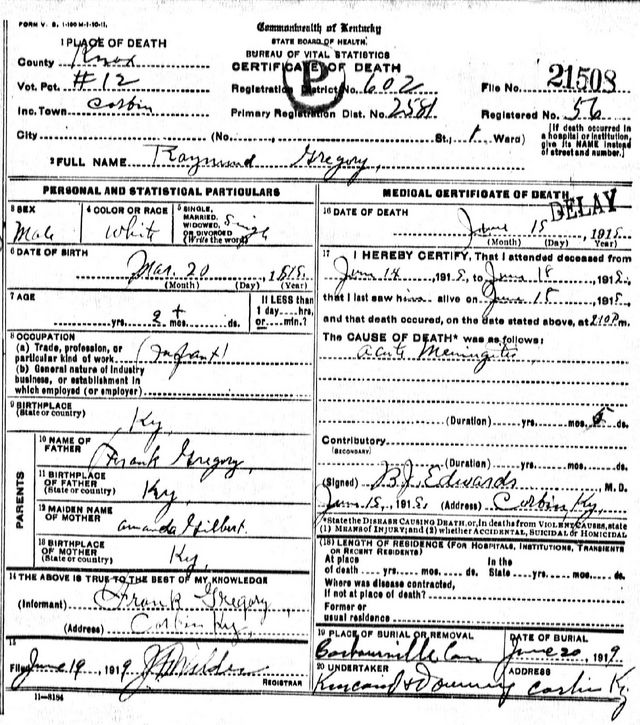 FORM V. S. 1-100 M-1-10-11.
Commonwealth of Kentucky
STATE BOARD OF HEALTH.
BUREAU OF VITAL STATISTICS
CERTIFICATE OF DEATH
P
1 PLACE OF DEATH
County Knox
Vot. Pct. #12
Inc. Town Corbin
City (No. St.; Ward)
Registration District No. 602
Primary Registration Dist. No. 2581
File No. 21508
Registered No. 56
[If death occurred in
a hospital or institution,
give its NAME instead
of street and number.]
2 FULL NAME Raymond Gregory,
PERSONAL AND STATISTICAL PARTICULARS
3 SEX
Male
4 COLOR OR RACE
White
5 SINGLE,
MARRIED,
WIDOWED,
OR DIVORCED
(Write the word)
Single
6 DATE OF BIRTH
Mar. 20, 1915.
(Month) (Day) (Year)
7 AGE
yrs. 2+ mos. ds.
If LESS than
1 day hrs.
or min.?
8 OCCUPATION
(a) Trade, profession, or
particular kind of work (Infant)
(b) General nature of industry
business, or establishment in
which employed (or employer)
9 BIRTHPLACE
(State or country) Ky.
PARENTS
10 NAME OF
FATHER Frank Gregory,
11 BIRTHPLACE
OF FATHER
(State or country) Ky,
12 MAIDEN NAME
OF MOTHER Amanda Gilbert.
13 BIRTHPLACE
OF MOTHER
(State or country) Ky,
14 THE ABOVE IS TRUE TO THE BEST OF MY KNOWLEDGE
(Informant) Frank Gregory,
(Address) Corbin Ky,
15
Filed June 19, 1919
REGISTRAR
11-8184
MEDICAL CERTIFICATE OF DEATH
DELAY
16 DATE OF DEATH
June 15, 1915.
(Month) (Day) (Year)
17 I HEREBY CERTIFY, That I attended deceased from
June 14, 1915, to June 18, 1915,
that I last saw him alive on June 15, 1915,
and that death occured, on the date stated above, at 2:10 P.m.
The CAUSE OF DEATH* was as follows:
Acute Meningitis
(Duration) yrs. mos. 5 ds.
Contributory
(SECONDARY)
(Duration) yrs. mos. ds.
(Signed) B.J. Edwards, M. D.
June 15, 1915. (Address) Corbin Ky.
*State the DISEASE CAUSING DEATH, or, in deaths from VIOLENT CAUSES, state
(1) MEANS OF INJURY; and (2) whether ACCIDENTAL, SUICIDAL or HOMICIDAL
(18) LENGTH OF RESIDENCE (FOR HOSPITALS, INSTITUTIONS, TRANSIENTS
OR RECENT RESIDENTS)
At place
of death yrs. mos. ds.
In the
State yrs. mos. ds.
Where was disease contracted,
if not at place of death?
Former or
usual residence
19 PLACE OF BURIAL OR REMOVAL
Barbourville
DATE OF BURIAL
June 20, 1919
20 UNDERTAKER
Kincaid & Downey
ADDRESS
Corbin Ky.